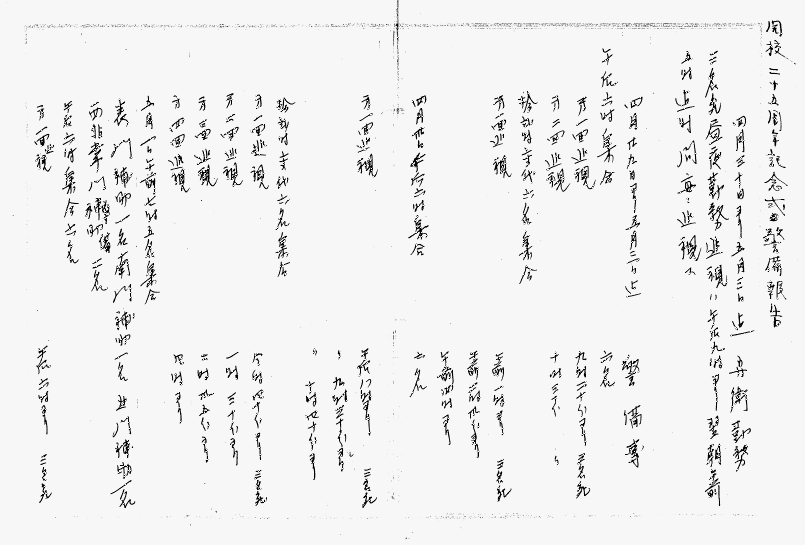 開校二十五周年記念式ノ警備報告
四月三十日ヨリ五月三日迄 守衛勤務
三名宛昼夜勤務巡視ハ午后九時ヨリ翌朝前
五時迄時間毎ニ巡視ス
四月廿九日ヨリ五月三日迄 警備専
午后六時集合 六名
第一回巡視 九時二十分ヨリ 三名宛
第二回巡視 十時三十分 〃
拾弐時交代六名集合
第一回巡視 午前一時ヨリ 三名宛
四月卅日午后六時集合 六名
第一回巡視 午后八時ヨリ 三名宛
〃 九時三十分ヨリ
〃 十時四十分ヨリ
拾弐時交代六名集合
第一回巡視 三名宛
第二回巡視 一時三十分ヨリ
第三回巡視
第四回巡視 四時ヨリ
五月一日午前七時五名集合
表門補助一名南門補助一名北門補助一名
西非常門補助 二名
午后六時集合六名
第一回巡視 午后六時ヨリ 三名宛